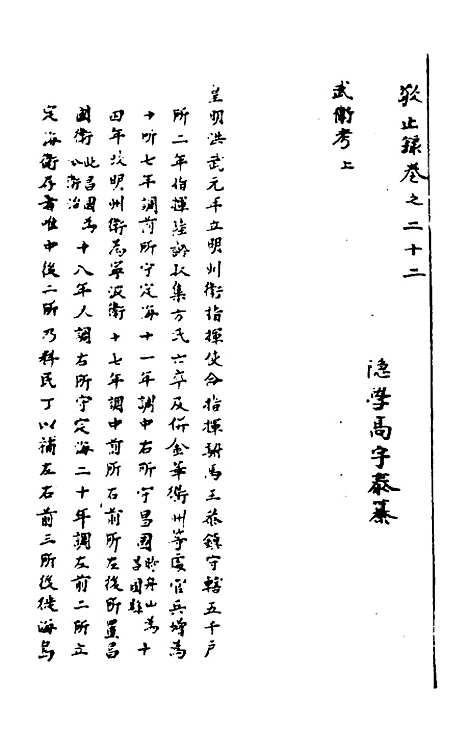 敬止録卷之二十二
隱學高宇泰纂
武衛考上
皇明洪武元年立明州衛指揮使命指揮駙馬王恭鎮守轄五千戶
所二年指揮陸齡収集方氏六卒及併金華衢州等處官兵增為
十所七年調前所守定海十一年調中右所守昌國時舟山為昌國縣十
四年改明州衛為寧波衛十七年調中前所右前所左後所置昌
國衛此昌國為衛治十八年人調右所守定海二十年調左前二所立
定海衛存者唯中後二所乃料民丁以補左右前三所後徙海島